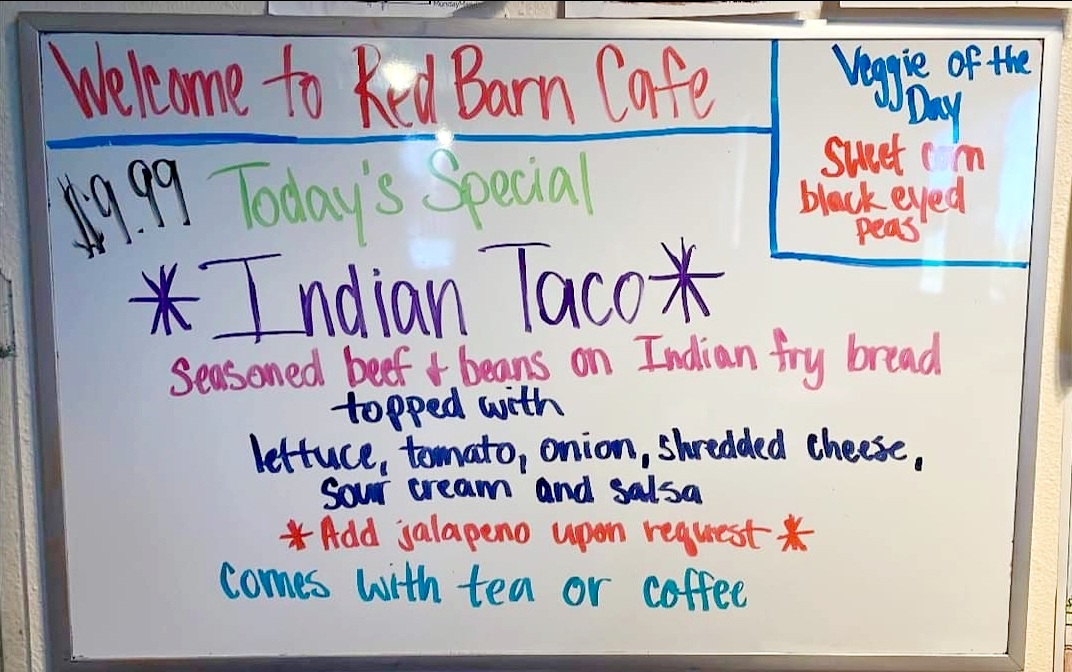 Welcome to Red Barn Cafe
Veggie of the
Day
Sweet corn
black eyed
peas
$9.99 Today's Special
*Indian Taco*
Seasoned beef & beans on Indian fry bread
topped with
lettuce, tomato, onion, shredded cheese,
sour cream and salsa
*Add jalapeno upon request*
comes with tea or coffee